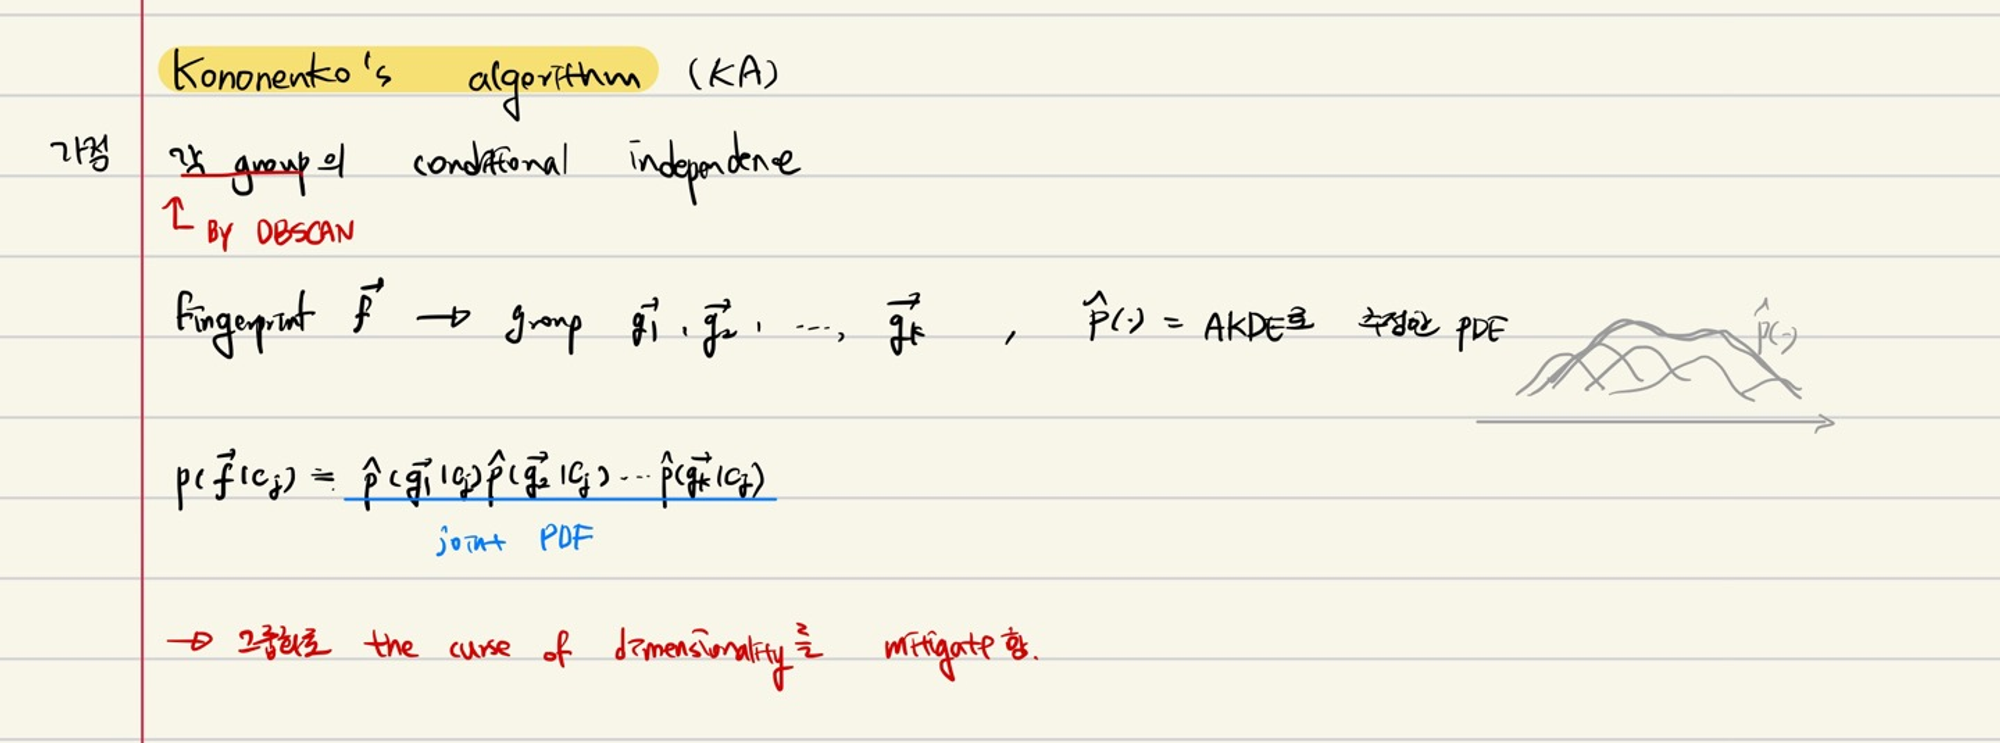 Kononenko's algorithm (KA)
가정 각 group의 conditional independence
↑ By DBSCAN
fingerprint f⃗ → group g⃗₁, g⃗₂, ..., g⃗ₖ , p̂(·) = AKDE로 추정한 PDF
p̂(·)
p(f⃗|cⱼ) = p̂(g⃗₁|cⱼ)p̂(g⃗₂|cⱼ)...p̂(g⃗ₖ|cⱼ)
joint PDF
→ 그룹화로 the curse of dimensionality를 mitigate함.